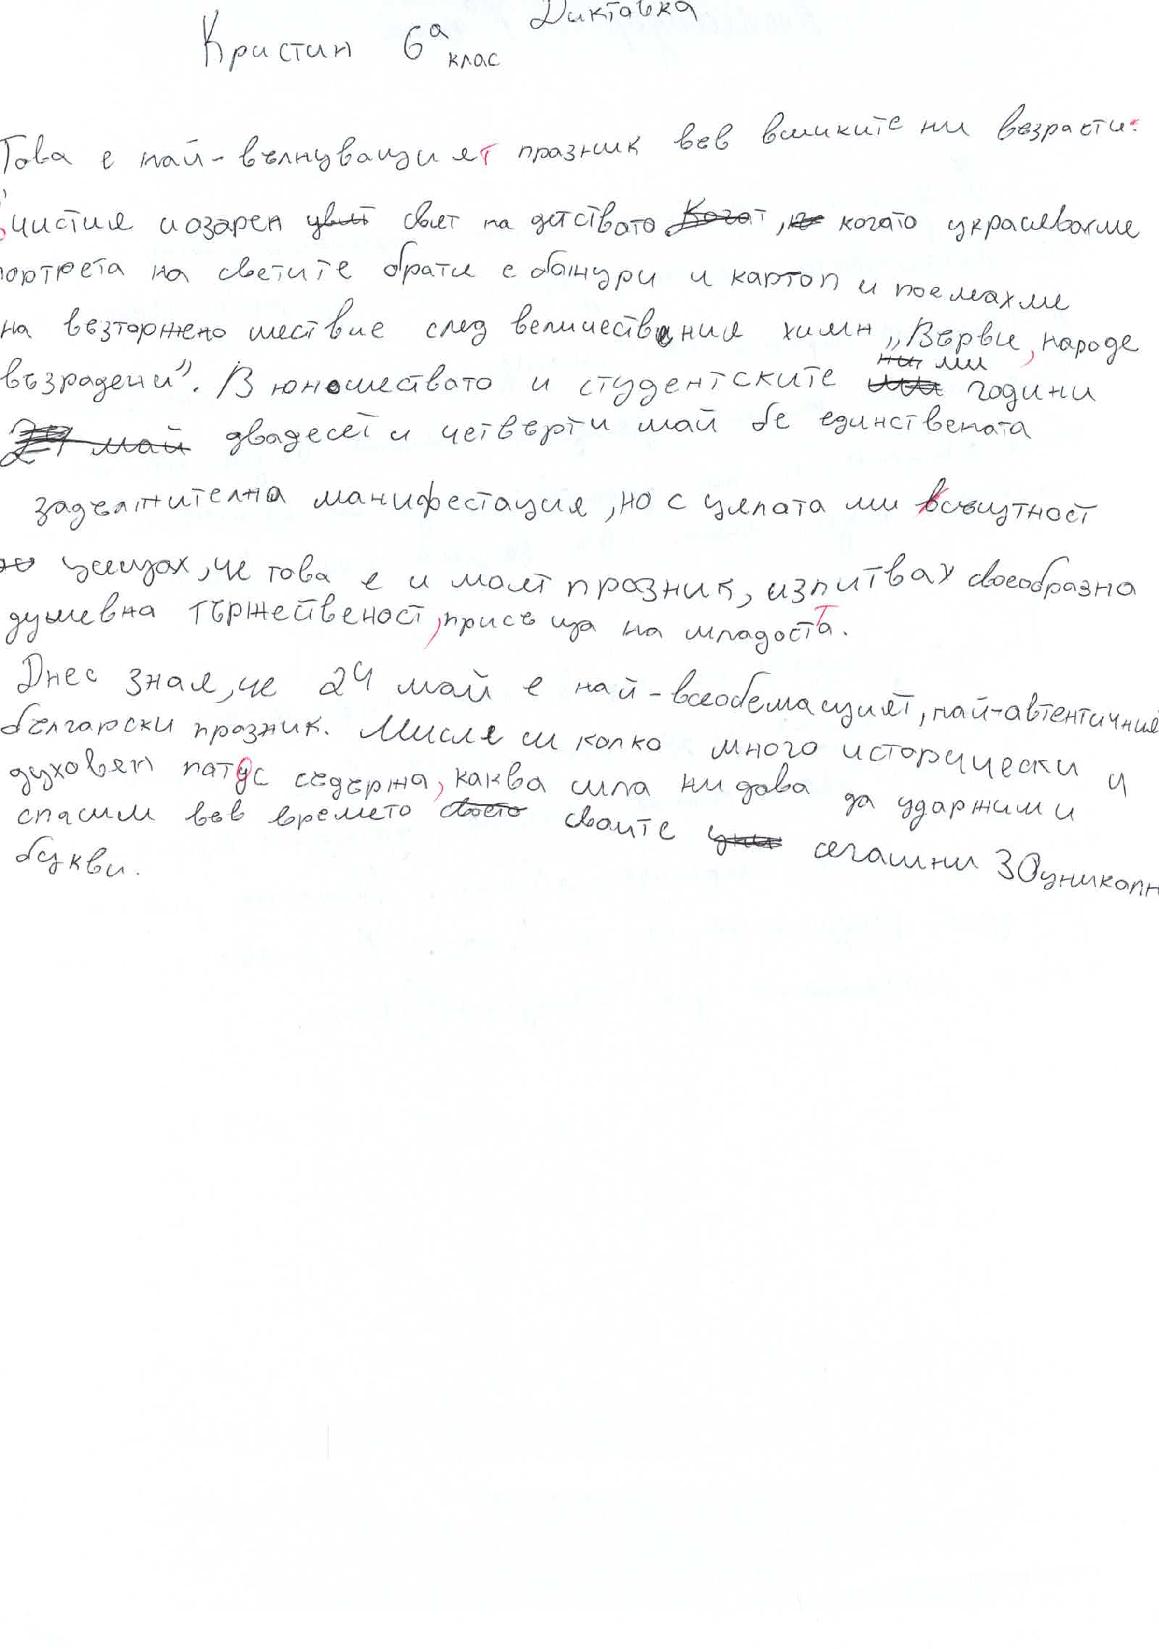 Диктовка
Кристин 6а клас
Това е най-вълнуващият празник във всиките ни възрасти:
чистия и озарен свят на детството, когато украсявахме
портрета на светите братя с божури и картон и поемахми
на възторжено шествие след величествения химн „Върви, народе
възрадени". В юношеството и студентските ми години
двадесет и четвърти май бе единствената
задължителна манифестация, но с цялата ми същност
усещах, че това е и моят празник, изпитвах своеобразна
душевна тържественост, присъща на младостта.
Днес зная, че 24 май е най-всеобемащият, най-автентичния
български празник. Мисля си колко много исторически и
духовен патос съдържа, каква сила ни дава да удържим и
спасим във времето своите сегашни 30 уникалн
букви.